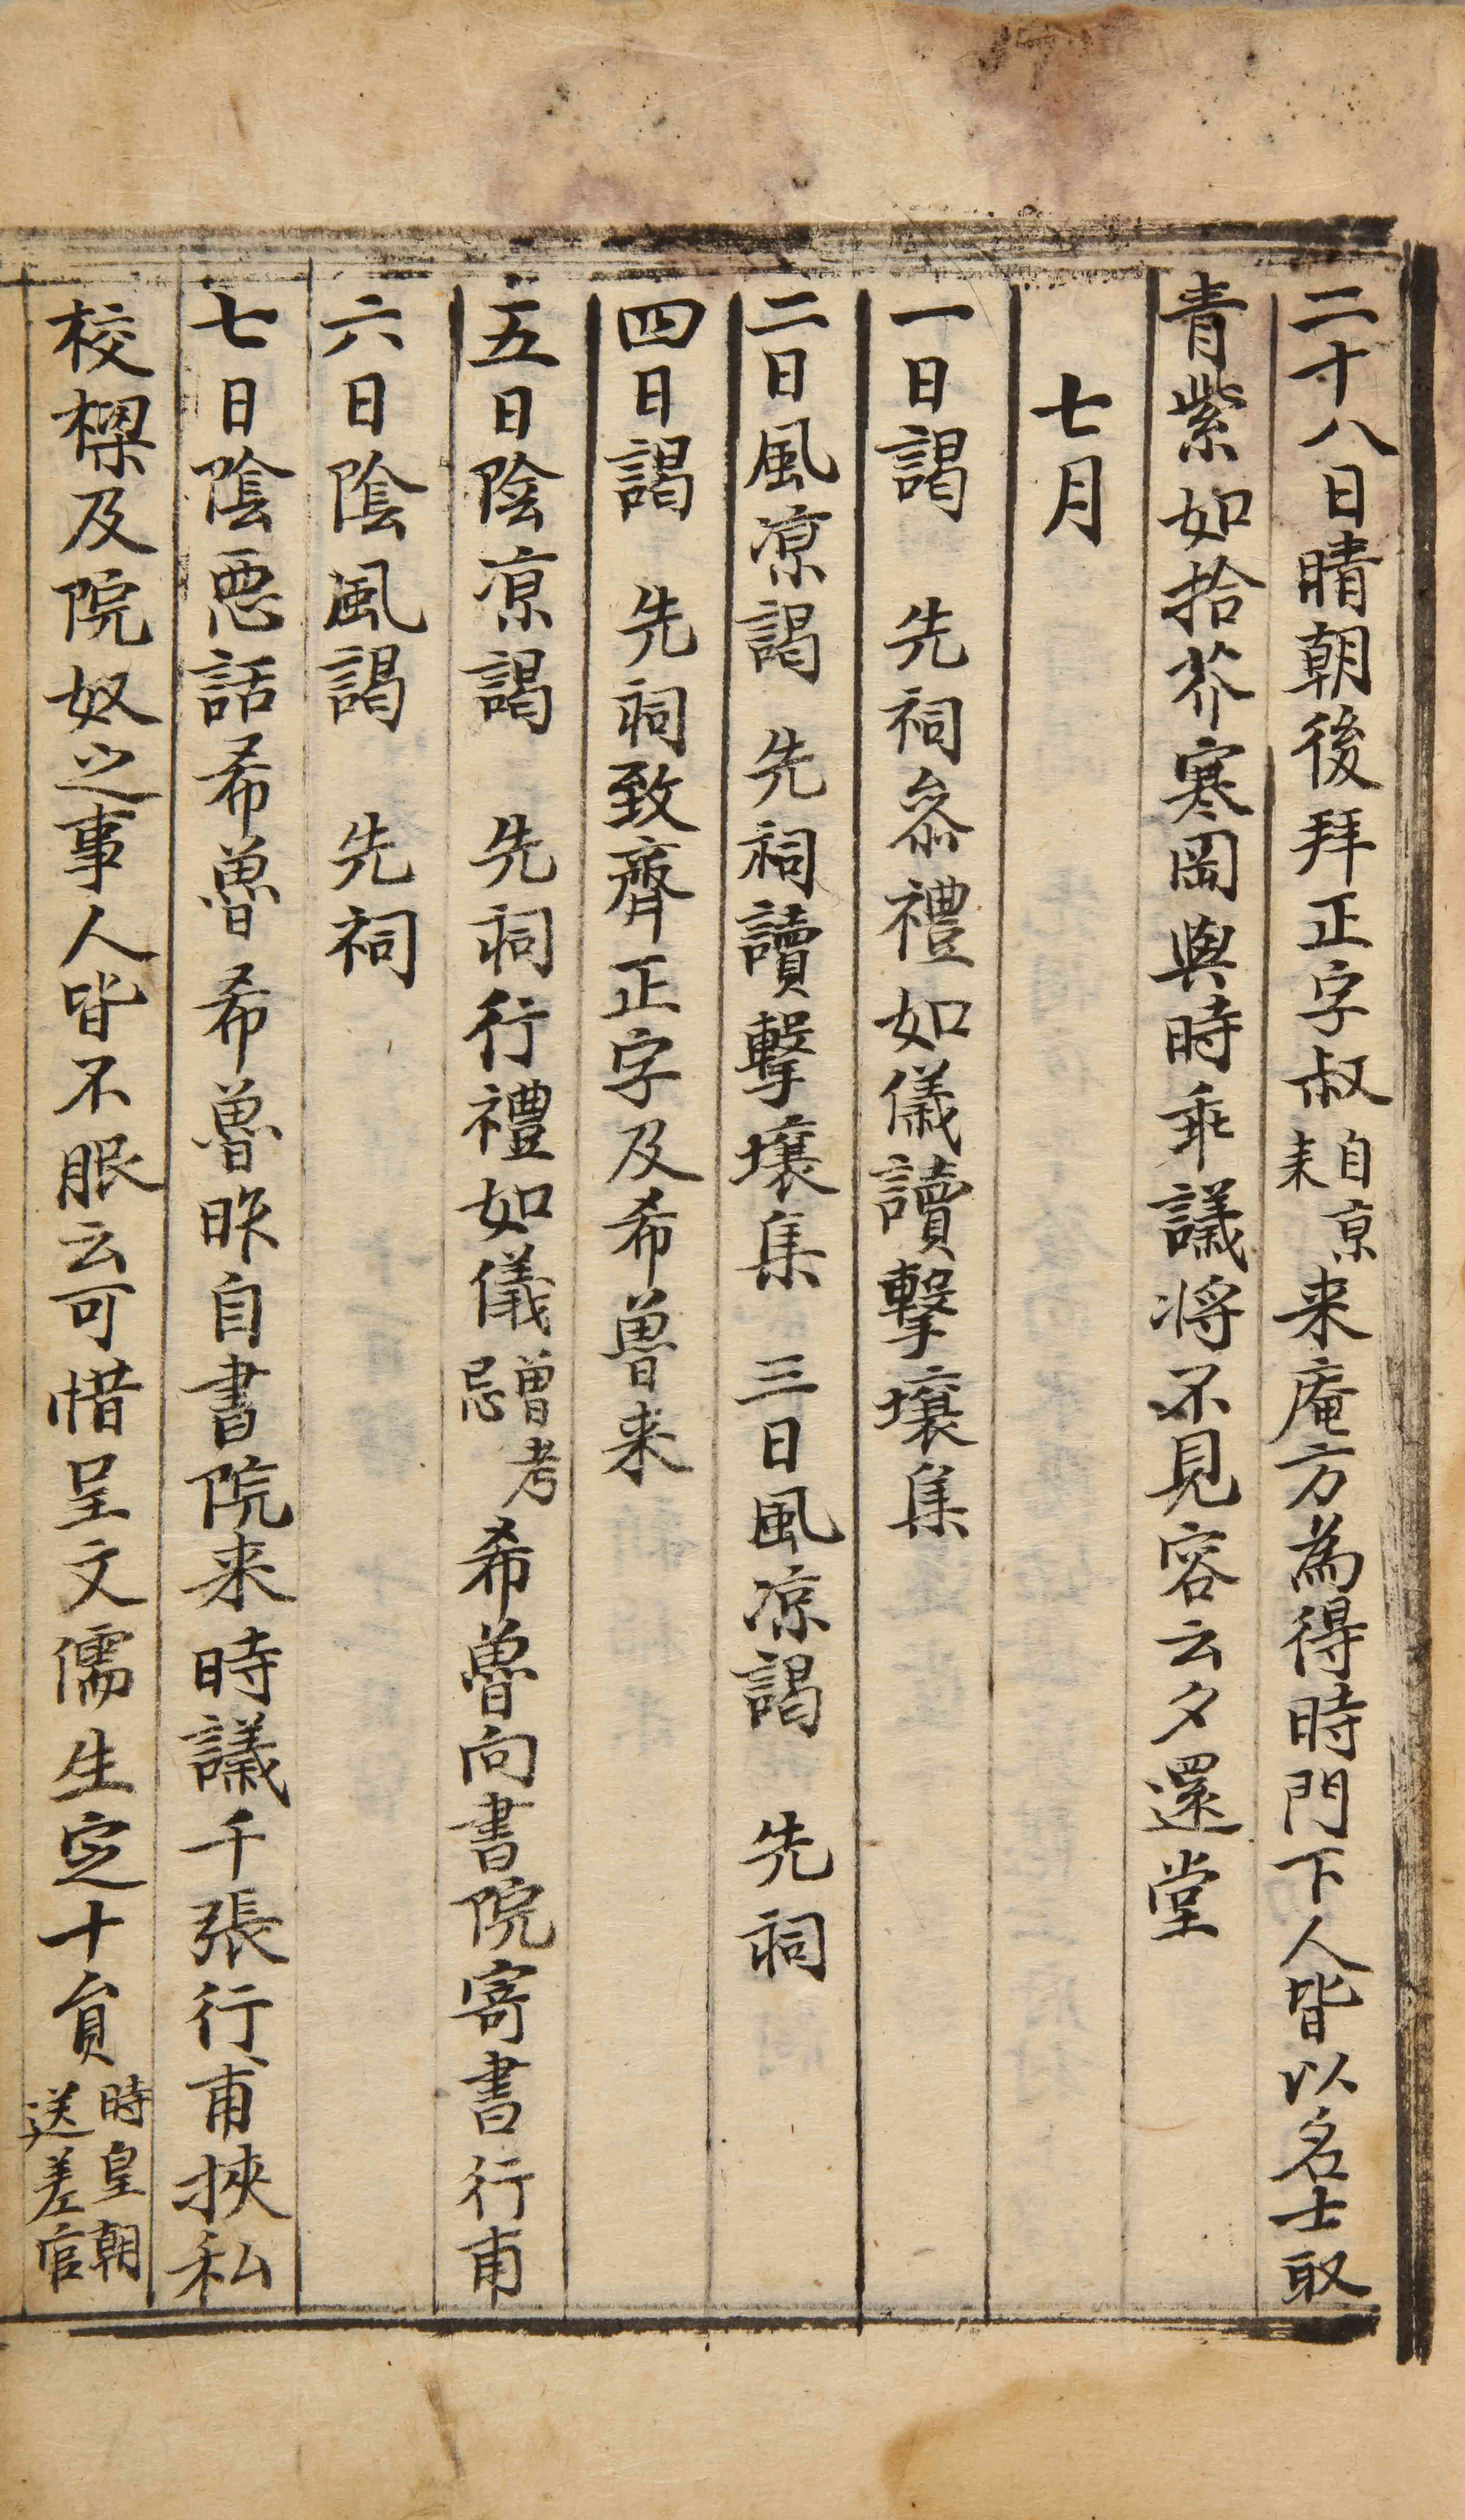 二十八日晴朝後拜正字叔自京来来庵方為得時門下人皆以名士取
青紫如拾芥寒岡與時乖議将不見容云夕還堂
七月
一日謁 先祠叅禮如儀讀擊壤集
二日風凉謁 先祠讀擊壤集 三日風凉謁 先祠
四日謁 先祠致齊正字及希魯来
五日陰凉謁 先祠行禮如儀曽考忌希魯向書院寄書行甫
六日陰風謁 先祠
七日陰悪話希魯希魯昨自書院来時議千張行甫挾私
校樑及院奴之事人皆不服云可惜呈文儒生定十負時皇朝送差官